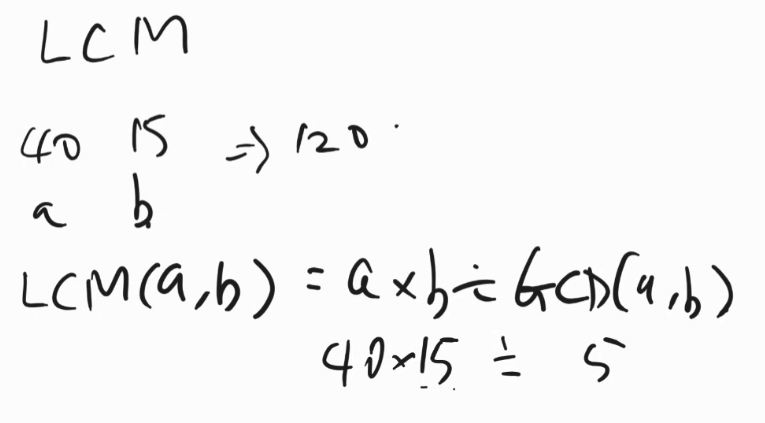 LCM
40 15 => 120
a b
LCM(a,b) = a × b ÷ GCD(a,b)
40×15 ÷ 5